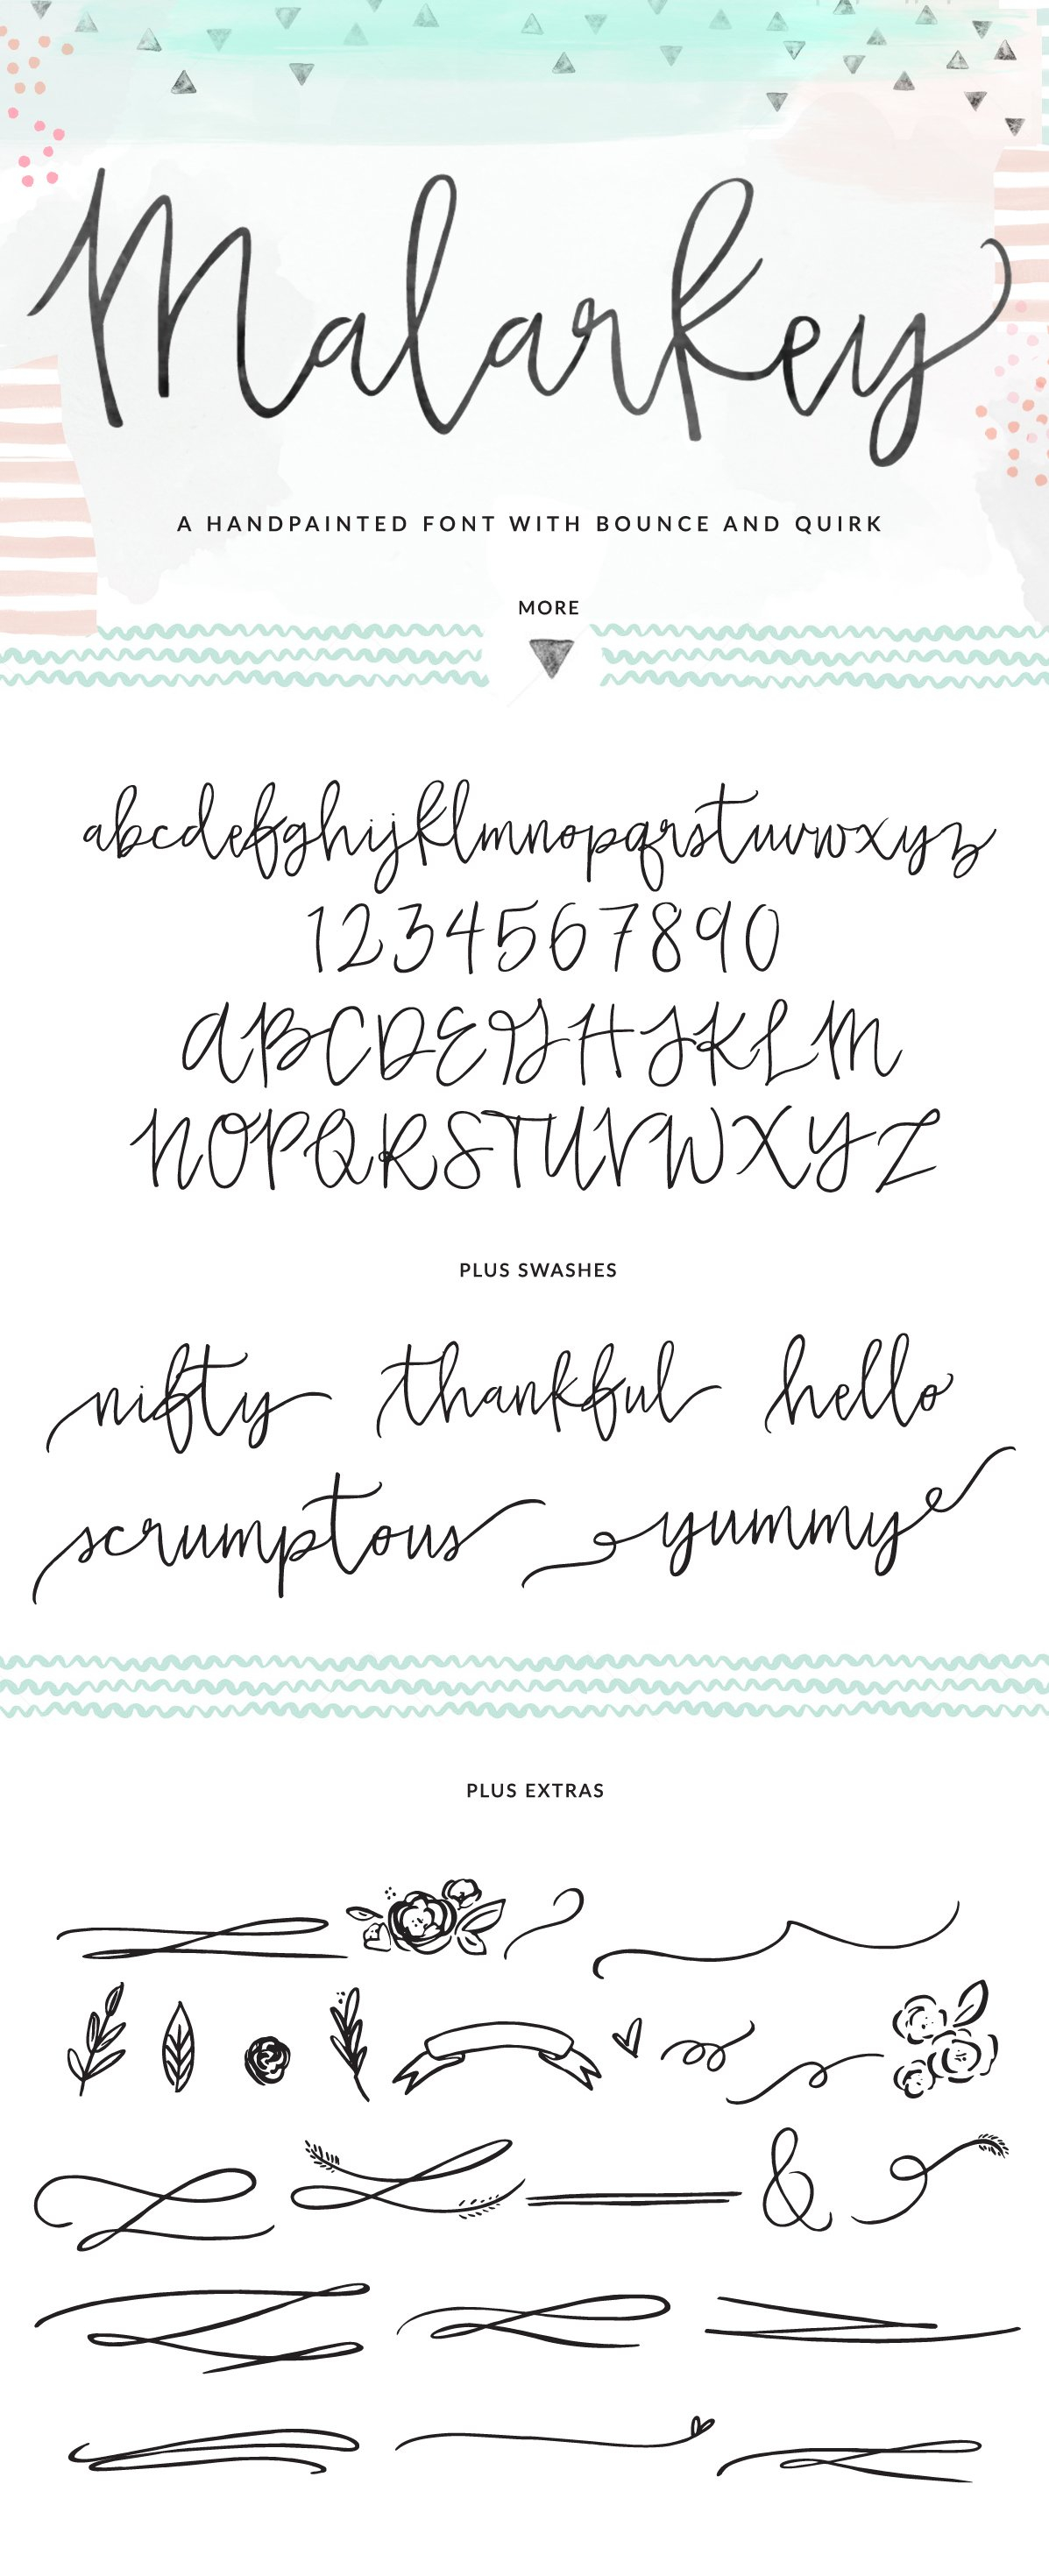 Malarkey
A HANDPAINTED FONT WITH BOUNCE AND QUIRK
MORE
abcdefghijklmnopqrstuvwxyz
1234567890
ABCDEGHJKLM
NOPQRSTUVWXYZ
PLUS SWASHES
nifty thankful hello
scrumptous yummy
PLUS EXTRAS
&